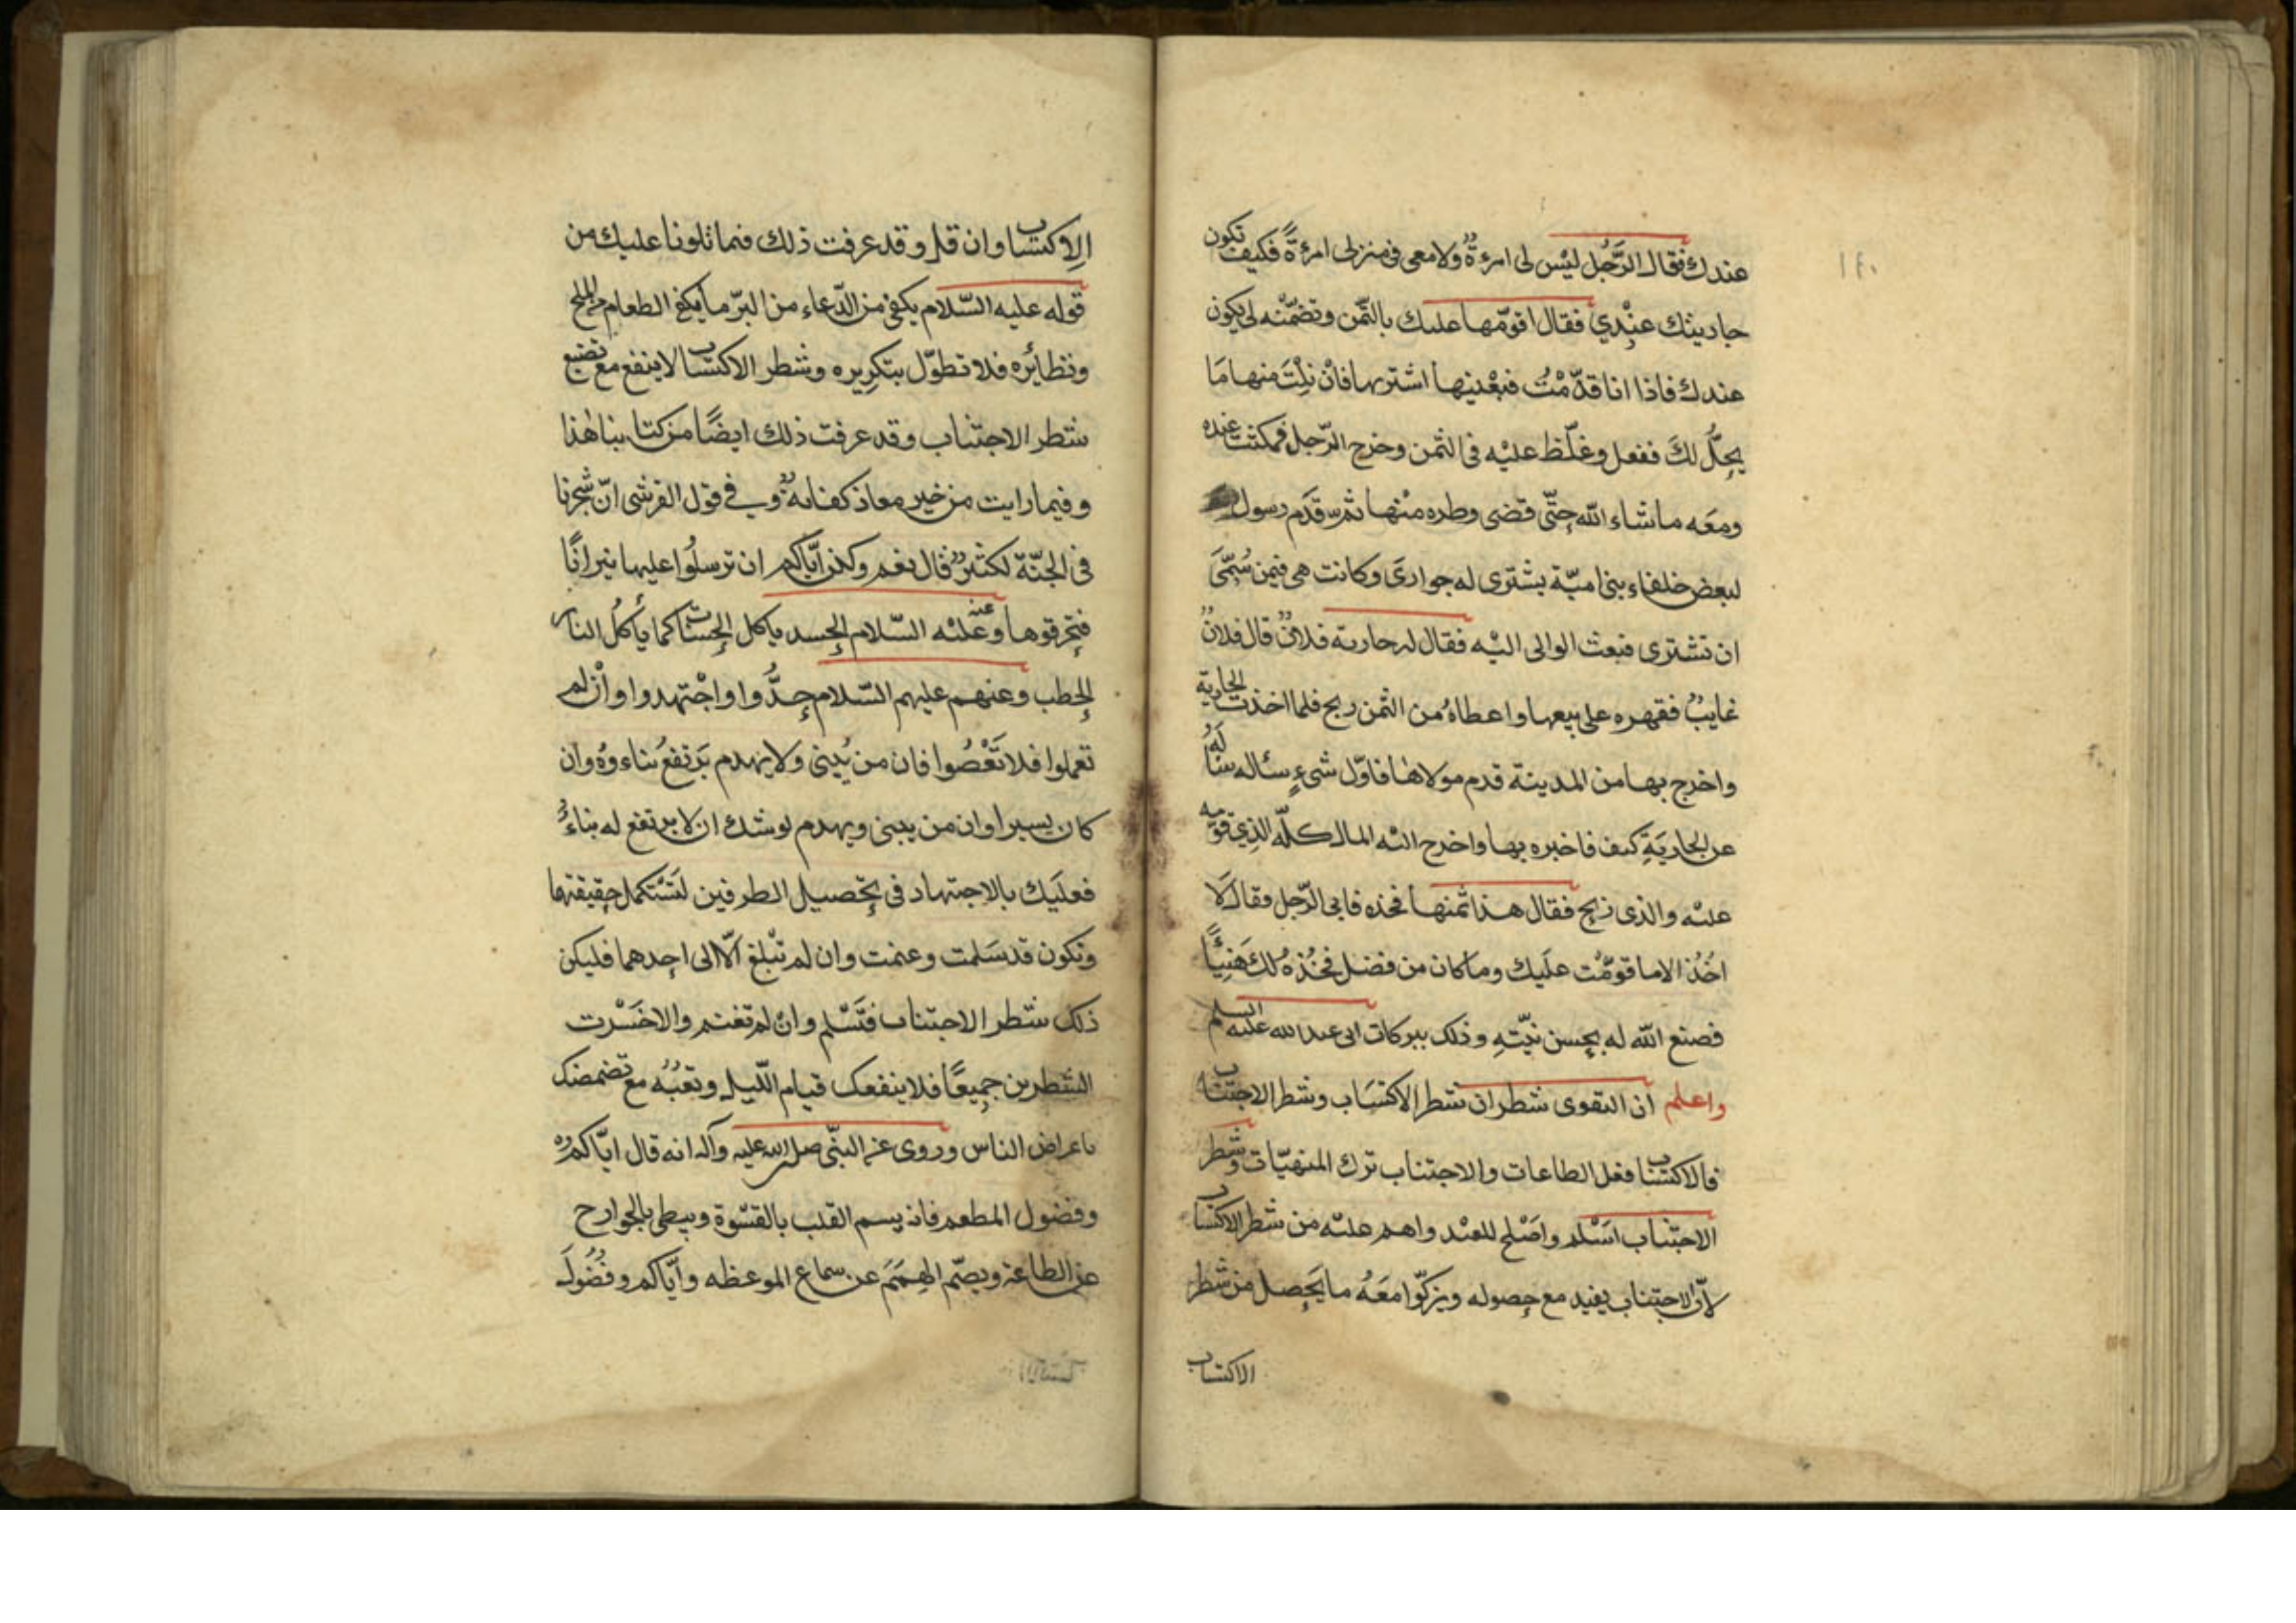 ١٤٠
عندك فقال الرَّجُل ليْس لى امرءةٌ ولا معى فى منزلى امرءةً فكيف تكون
جاريتك عنْدِي فقال اقوّمها عليك بالثّمن وتضمّنه لى يكون
عندك فاذا انا قدّمْتُ فبِعْنيها اشتريها فانْ نِلْتَ منها مَا
يحِلُّ لكَ ففعل وغلّظ عليْه فى الثمن وخرج الرّجل فمكثت عنده
ومعَه ما شاء اللّه حتّى قضى وطره منْها ثمّ قَدَم رسول
لبعض خلفاء بنى اميّة يشترى له جوارىَ وكانت هى فيمن سُمِّىَ
ان تشترى فبعث الوالى اليْه فقال له جارية فلانٌ قال فلانٌ
غايبٌ فقهره على بيعها واعطاهُ من الثمن ربح فلما اخذت الجارية
واخرج بها من المدينة قدم مولاها فاوّل شىءٍ سئاله سئالَهُ
عن الجاريَةِ كيف فاخبره بها واخرج اليْه المال كلّه الّذِى قوّمه
عليْه والذى ربح فقال هذا ثمنها فخذه فابى الرّجل وقال لَا
اخُذ الا ما قوّمْت علَيك وما كان من فضل فخُذهُ لك هَنِيئًا
فصنع اللّه له بحسن نيّتهِ وذلك ببركات ابى عبد الله عليه السلم
واعلم ان التقوى شطران شطر الاكتسَاب وشطر الاجتناب
فالاكتساب فعل الطاعات والاجتناب ترك المنهيّات وشطر
الاجتناب اسْلم واصْلح للعبْد واهم عليْه من شطر الاكتساب
لانّ الاجتناب يفيد مع حصوله ويزكّوا معَهُ ما يَحصل من شطر
الاكتساب
الاكتساب وان قل وقد عرفت ذلك فيما تلونا عليك من
قوله عليه السّلام يكفى من الدّعاء من البرّ ما يكفى الطعام من الملح
ونظائره فلا تطوّل بتكريره وشطر الاكتساب لا ينفع مع تضيع
شطر الاجتناب وقد عرفت ذلك ايضًا من كتابنا هٰذا
وفيما رايت من خبر معاذ كفايةٌ وفي قول القرشى انّ شجرنا
فى الجنّة لكثيرٌ قال نعم ولكن ايّاكم ان ترسلُوا عليها نيرانًا
فتحرقوها وعنه علَيْه السّلام الحسد ياكل الحسنات كما ياكلُ النار
الحطب وعنهم عليهم السّلام جِدُّوا واجْتهدوا وانْ لم
تعملوا فلا تَعْصُوا فان من يُبنى ولا يهدم يَرتفعُ بناءوهُ وان
كان يسيرا وان من يبنى ويهدم يوشك ان لا يرتفع له بناءٌ
فعليَك بالاجتهاد فى تحصيل الطرفين لتَسْتكمل حقيقتها
وتكون قد سَلمت وغنمت وان لم تبْلغ الّا الى احدهما فليكن
ذلك شطر الاجتناب فتَسْلم وانْ لم تغنم والا خَسْرت
الشطرين جميعًا فلا ينفعك قيام اللّيل وتعبُهُ مع تضمضك
باعراض الناس وروى عن النبّى صلى الله عليه وآله انه قال ايّاكم
وفضول المطعم فانه يسم القلب بالقسْوة ويبطى بالجوارح
عن الطاعة ويصّم الهِمَمَ عن سماع الموعظه وايّاكم وفُضُولَ